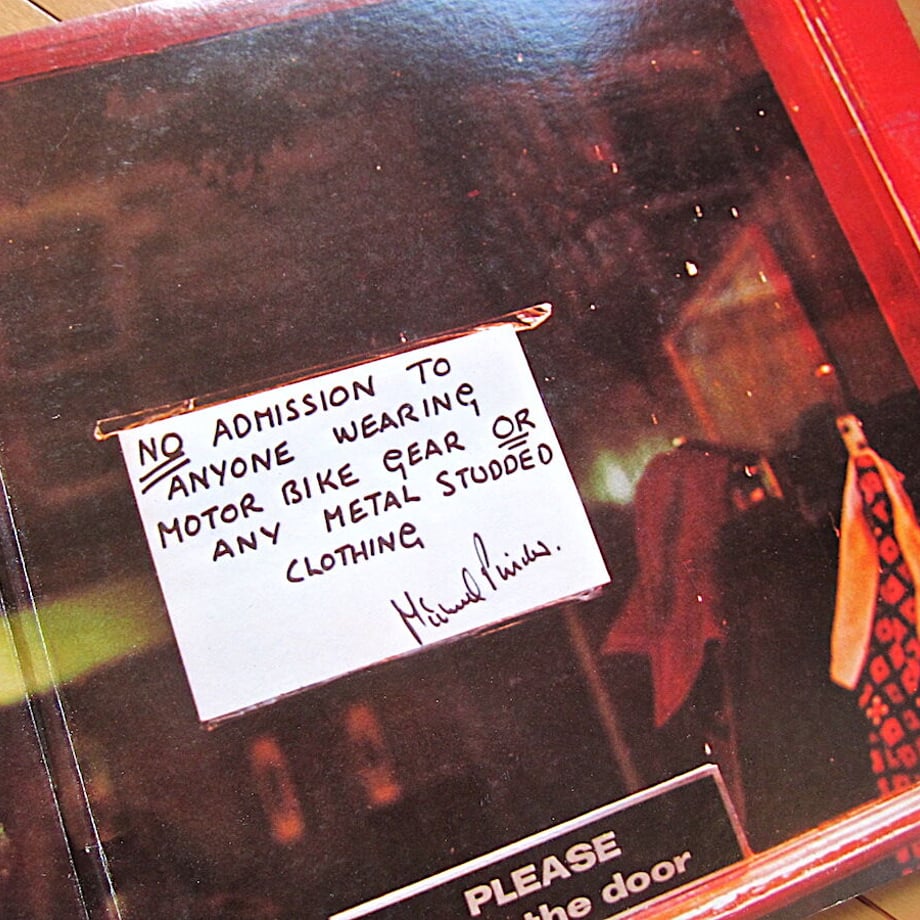 NO ADMISSION TO
ANYONE WEARING
MOTOR BIKE GEAR OR
ANY METAL STUDDED
CLOTHING
PLEASE
the door